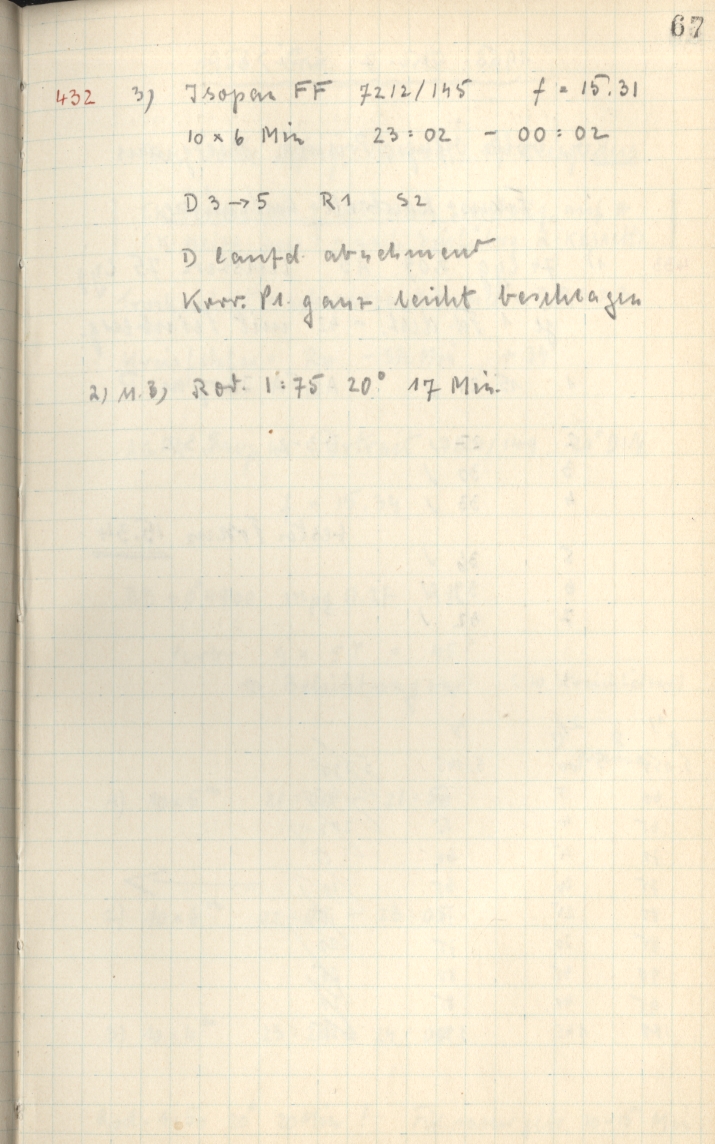 67
432 3) Isopan FF 7212/145 f = 15.31
10 × 6 Min 23:02 - 00:02
D 3 → 5 R1 S2
D laufd. abnehmend
Korr. Pl. ganz leicht beschlagen
2) u. 3) Rod. 1:75 20° 17 Min.